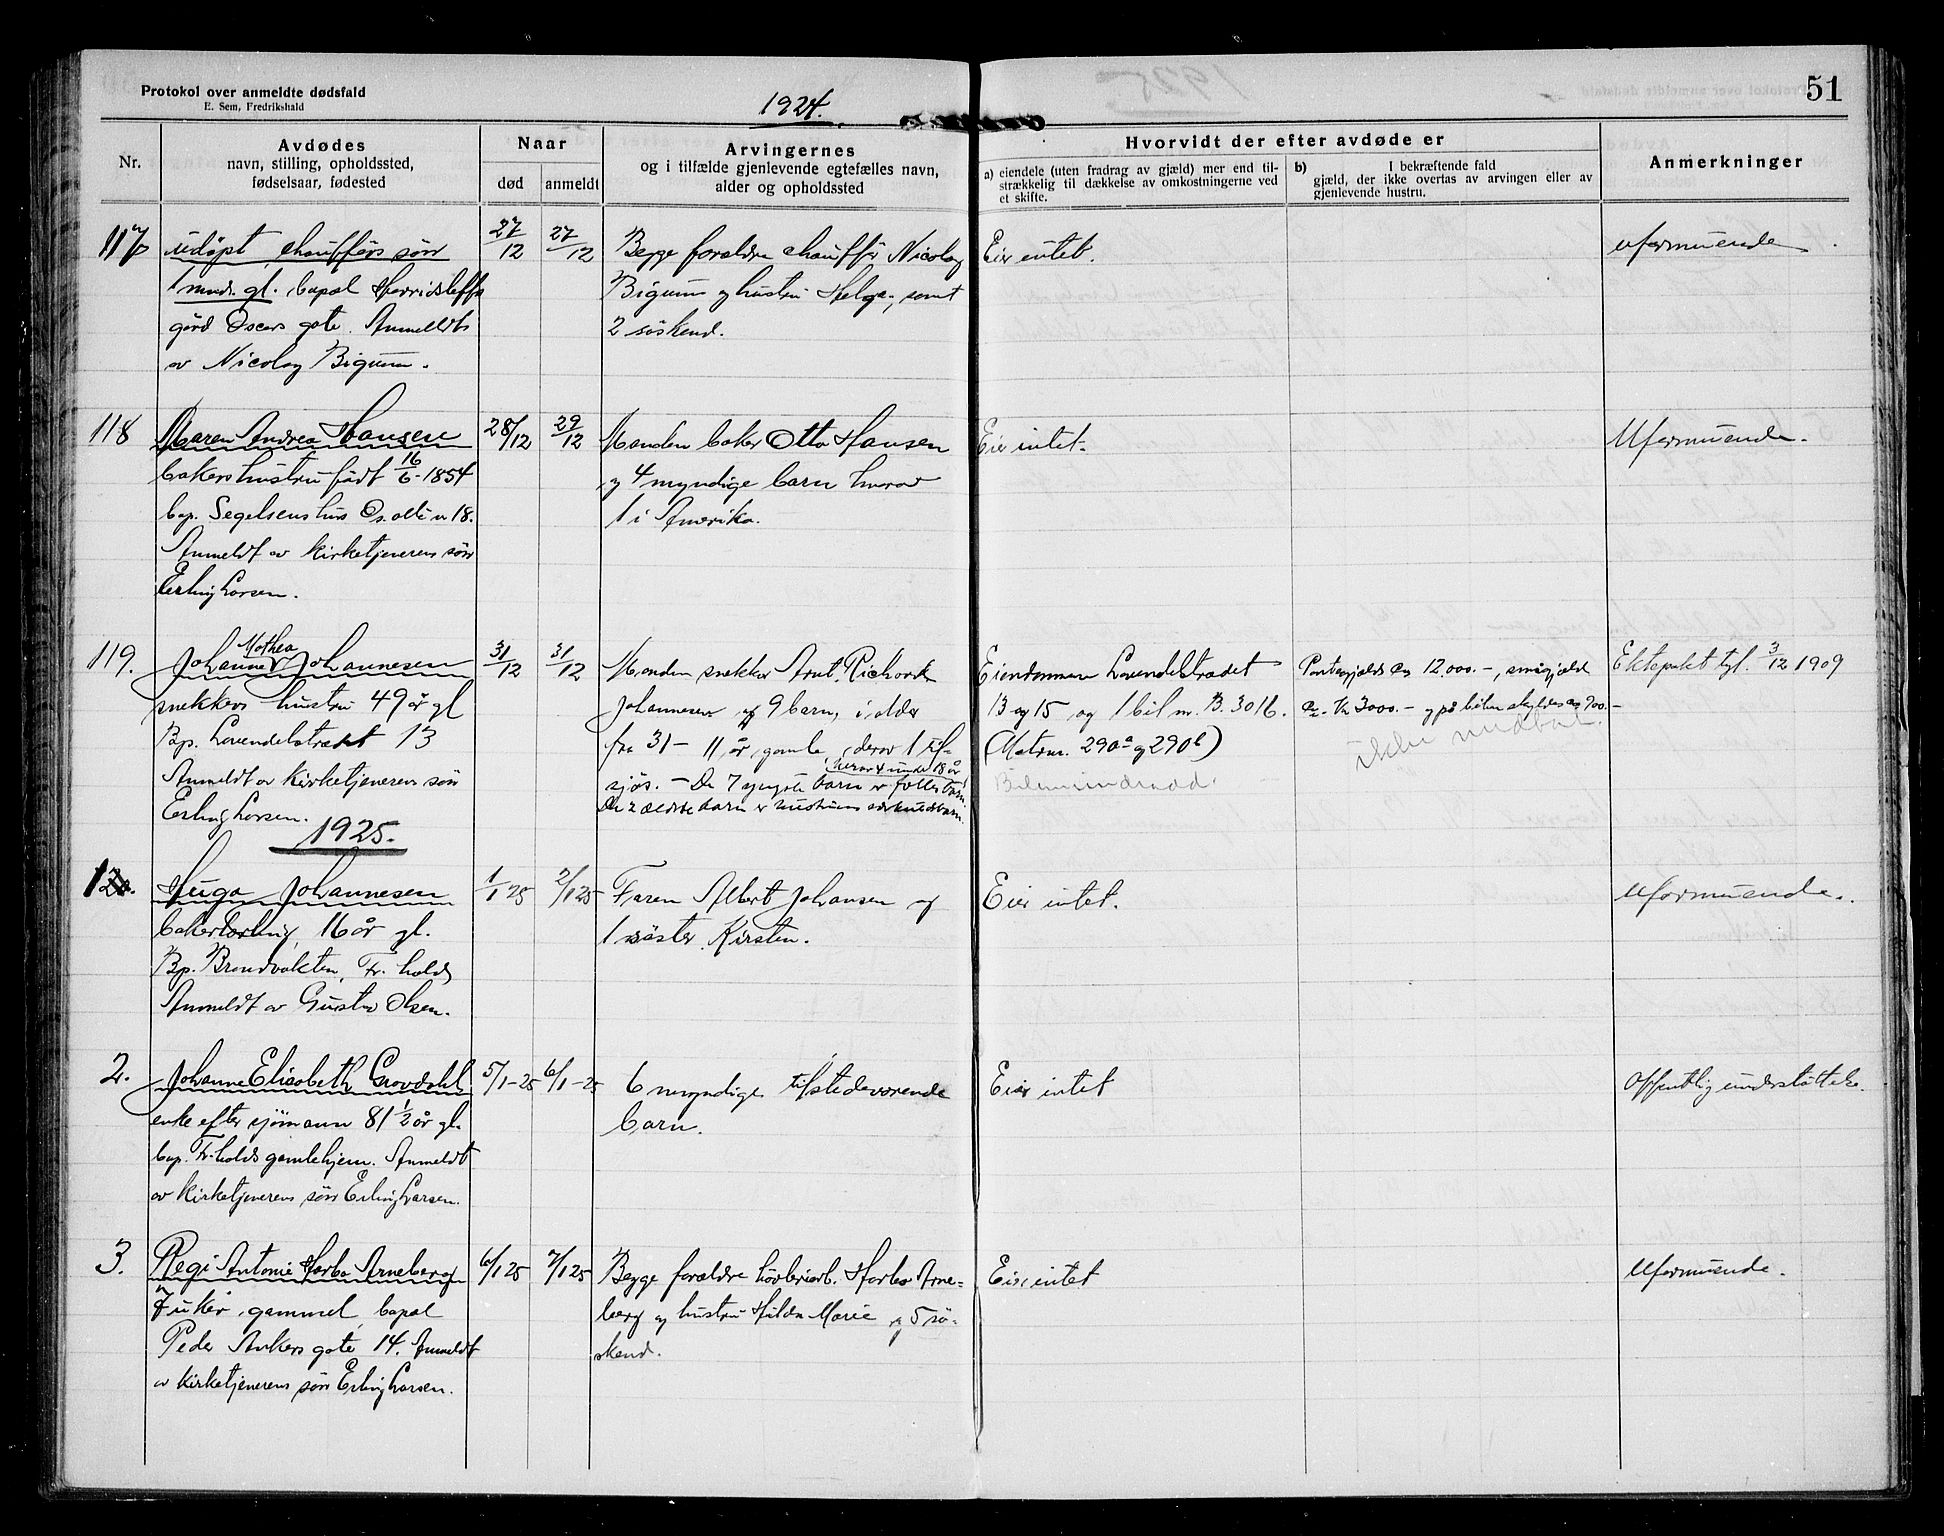 Protokol over anmeldte dødsfald
E. Sem, Fredrikshald
1924.
51
Nr.
Avdødes
navn, stilling, opholdssted,
fødselsaar, fødested
Naar
død
anmeldt
Arvingernes
og i tilfælde gjenlevende egtefælles navn,
alder og opholdssted
Hvorvidt der efter avdøde er
a) eiendele (uten fradrag av gjæld) mer end til-
strækkelig til dækkelse av omkostningerne ved
et skifte.
b) I bekræftende fald
gjæld, der ikke overtas av arvingen eller av
gjenlevende hustru.
Anmerkninger
117
udøpt chaufførs søn
1 mnd. gl. bopæl
gård Oscars gate. Anmeldt
av Nicolay Bigum.
27/12
27/12
Begge forældre chauffør Nicolay
Bigum og hustru Helga, samt
2 søskend.
Eier intet.
uformuende
118
Maren Andrea Hansen
bakers hustru født 16/6-1854
bop. Segelsens hus Os. alle n 18.
Anmeldt av kirketjenerens søn
Erling Larsen.
28/12
29/12
Manden baker Otto Hansen
og 4 myndige barn hvorav
1 i Amerika.
Eier intet.
Uformuende.
119.
Johanne Mathea Johannesen
snekkers hustru 49 år gl
Bp. Lavendelstrædet 13
Anmeldt av kirketjenerens søn
Erling Larsen.
31/12
31/12
Manden snekker Arnt Richard
Johannesen og 9 barn, i alder
fra 31 – 11 år gamle, derav 1 til-
sjøs. – De 7 yngste barn er fælles barn
herav 4 under 18 år
De 2 ældste barn er hustruens særkuldsbarn.
Eiendommene Lavendelstrædet
13 og 15 og 1 bil nr. B. 3016.
(Matrnr. 290a og 290b)
Pantegjæld ca 12,000.–, smågjæld
ca. Kr 3000.– og på bilen skyldes ca 900.–
ikke
Ektepakt tgl. 3/12 1909
1925.
1
Hugo Johannesen
bakerlærling, 16 år gl.
Bp. Brandvakten, Fr. hald,
Anmeldt av Gustav Olsen.
1/1 25
2/1 25
Faren Albert Johansen og
1 søster Kirsten.
Eier intet.
Uformuende.
2.
Johanne Elisabeth Grovdahl
enke efter sjømann 81 1/2 år gl.
bop. Fr.halds gamlehjem. Anmeldt
av kirketjenerens søn Erling Larsen.
5/1-25
6/1-25
6 myndige tilstedeværende
barn.
Eier intet
Offentlig understøttelse.
3.
Regi Antonie Harbo Arneberg
7 uker gammel, bopæl
Peder Ankers gate 14. Anmeldt
av kirketjenerens søn Erling Larsen.
6/1 25
7/1 25
Begge forældre høvleriarb. Harbo Arne-
berg og hustru Hilda Marie og 5 sø-
skend.
Eier intet
Uformuende.